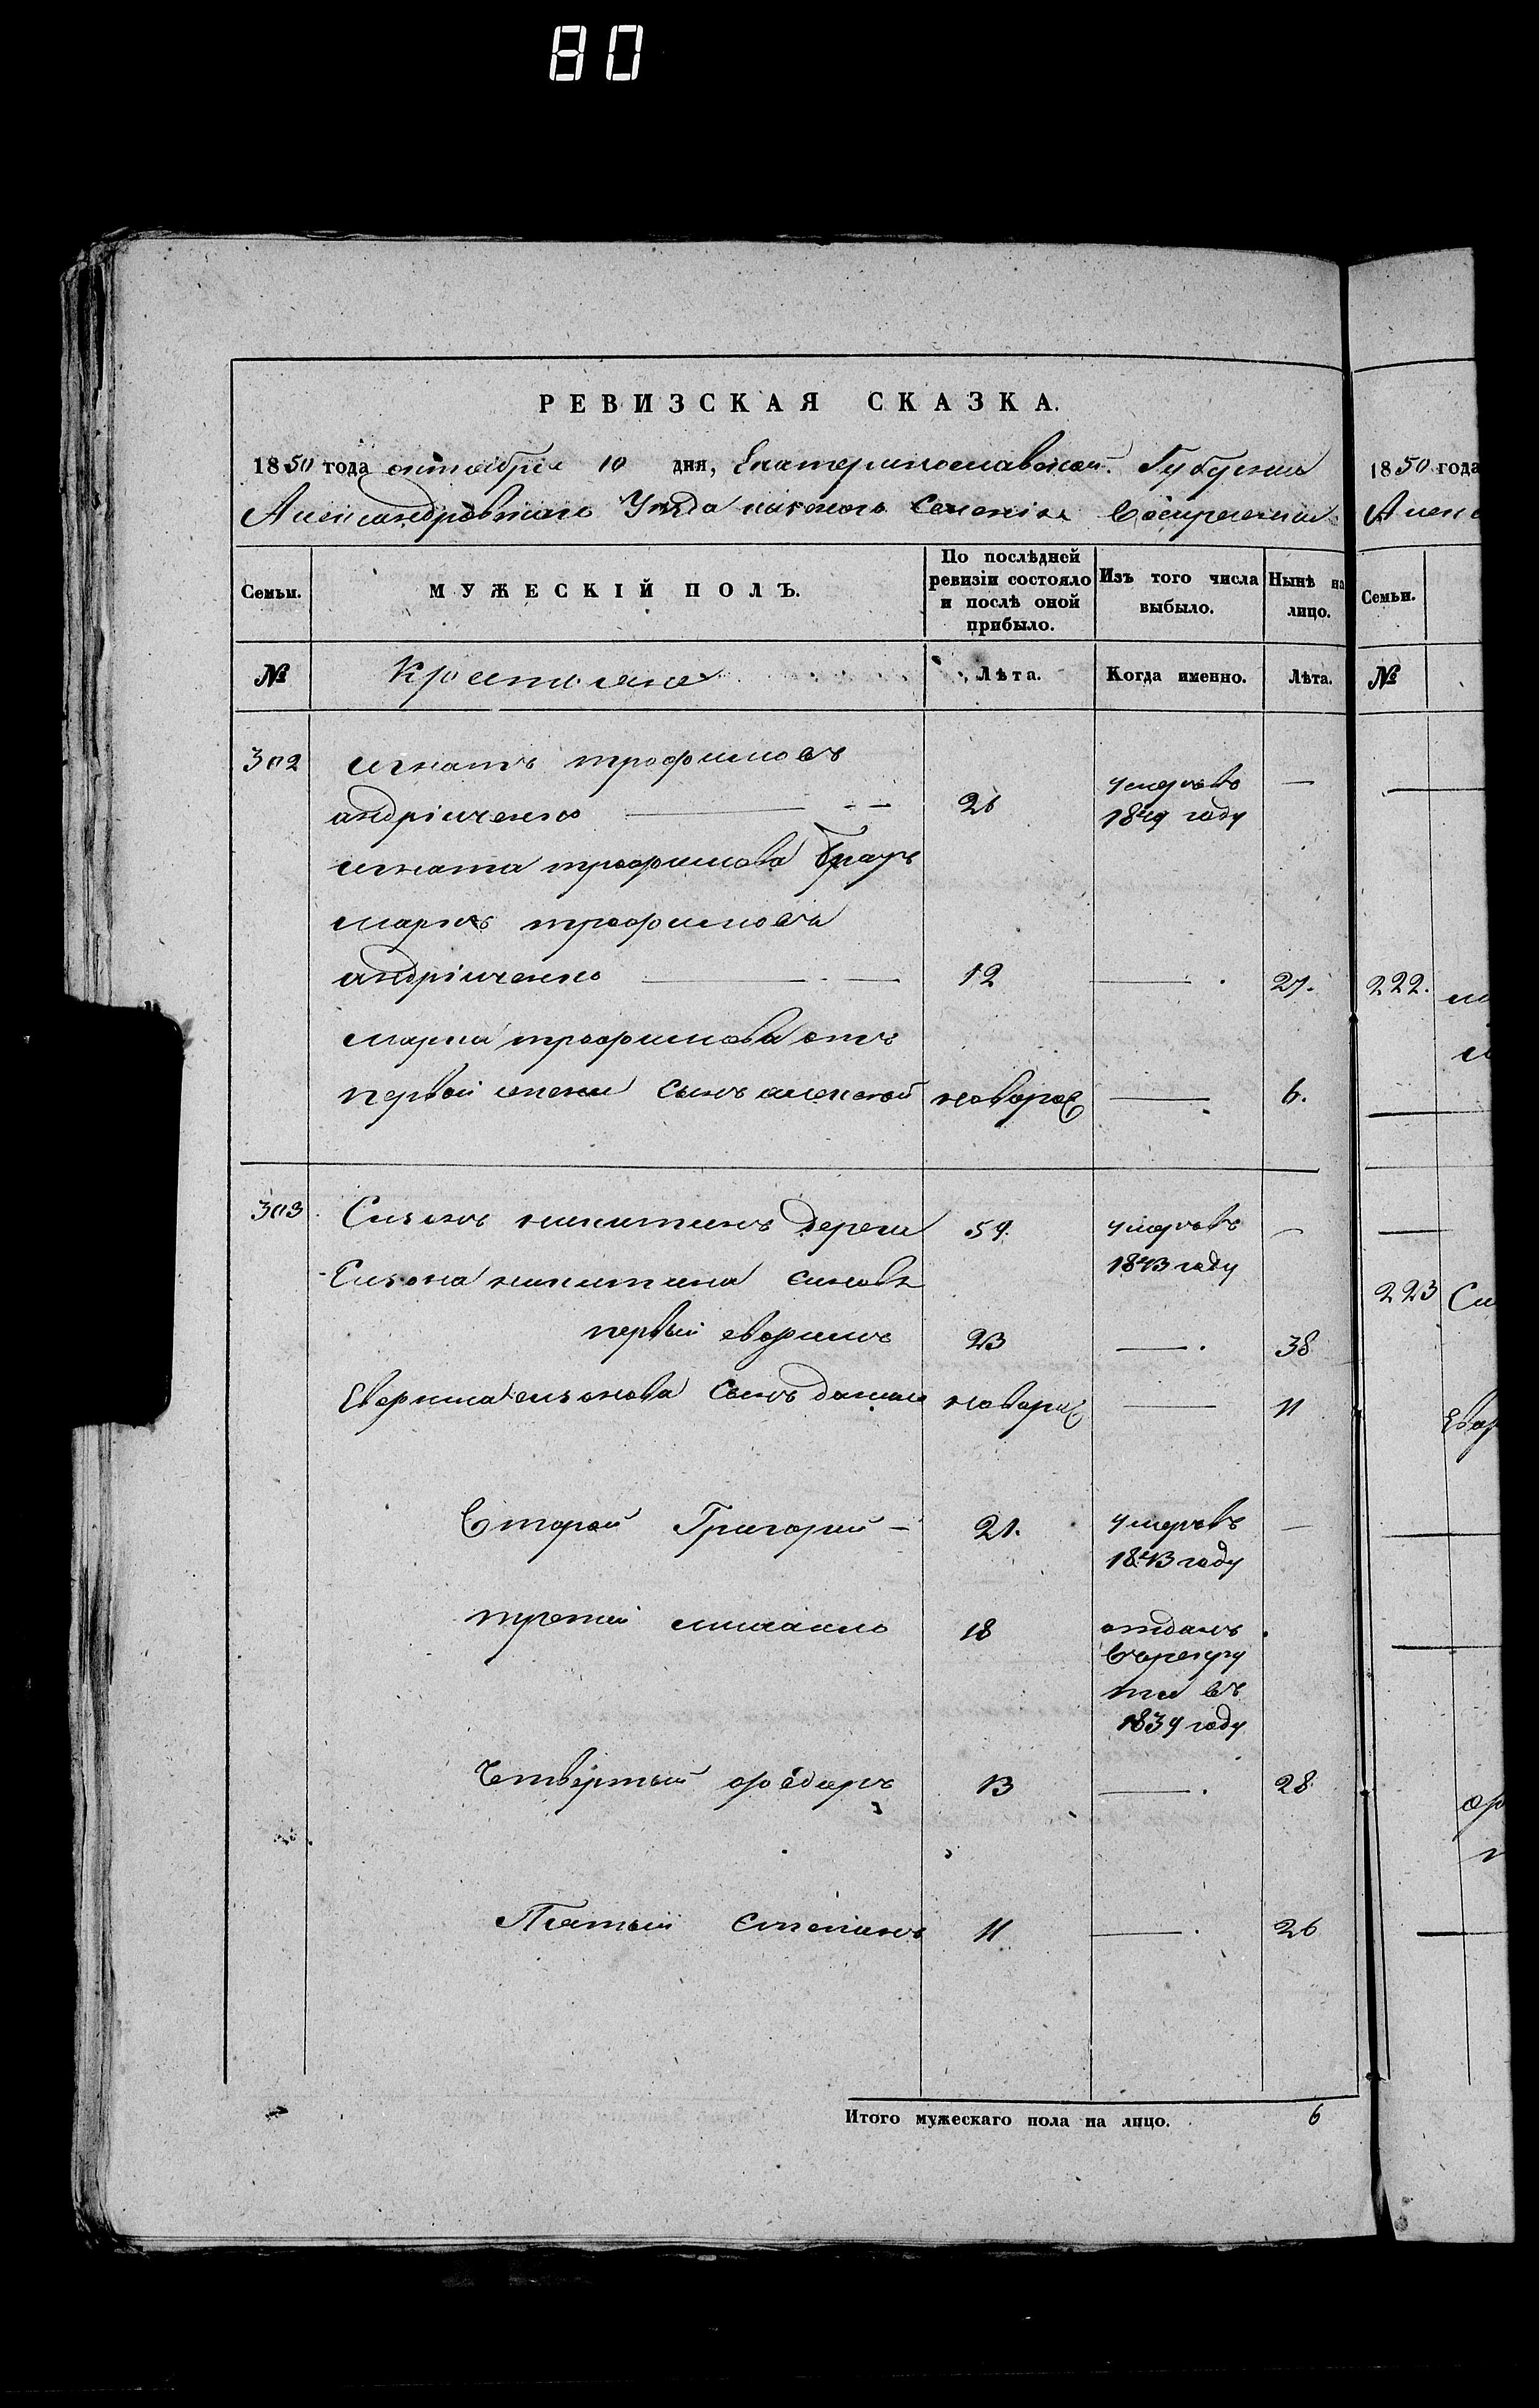 80
РЕВИЗСКАЯ СКАЗКА.
1850 года октября 10 дня, Екатеринославской Губернии
Александровскаго Уезда казеннаго Селенія
Семьи.
МУЖЕСКІЙ ПОЛЪ.
По послѣдней ревизіи состояло и послѣ оной прибыло.
Изъ того числа выбыло.
Нынѣ на лицо.
№
Крестьяне
Лѣта.
Когда именно.
Лѣта.
302 игнатъ трофимовъ
андріиченко 26 умеръ въ 1849 году —
игната трофимова братъ
маркъ трофимовъ
андріиченко 12 — 27.
марка трофимова отъ
первой жены сынъ алексей новорож — 6.
303 Сизонъ никитинъ дереза 59. умеръ въ 1843 году —
Сизона никитина синовя
первый евфимъ 23 — 38
Евфима сизонова Сынъ новорож — 11
Второй Григорий — 21. умеръ въ 1843 году —
третий михаило 18 отданъ в рекруты въ 1839 году
Четвертый федоръ 13 — 28
Пятый Степанъ 11 — 26
Итого мужескаго пола на лицо. 6
1850 года
Семьи.
№
222.
223